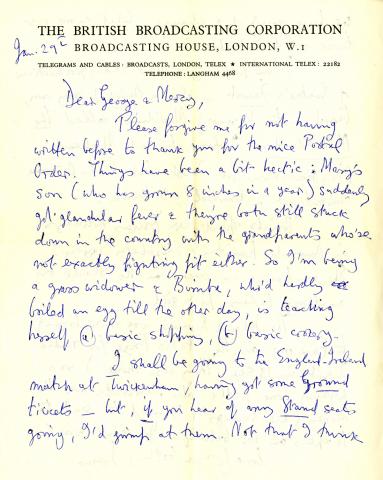 THE BRITISH BROADCASTING CORPORATION
BROADCASTING HOUSE, LONDON, W.1
TELEGRAMS AND CABLES: BROADCASTS, LONDON, TELEX ★ INTERNATIONAL TELEX: 22182
TELEPHONE: LANGHAM 4468
Jan. 29th
Dear George & Mercy,
Please forgive me for not having
written before to thank you for the nice Postal
Order. Things have been a bit hectic: Mary's
son (who has grown 8 inches in a year) suddenly
got glandular fever & they're both still stuck
down in the country with the grandparents who're
not exactly fighting fit either. So I'm being
a grass widower & Bimba, who'd hardly
boiled an egg till the other day, is teaching
herself (a) basic shopping, (b) basic cookery.
I shall be going to the England-Ireland
match at Twickenham, having got some Ground
tickets – but, if you hear of any Stand seats
going, I'd jump at them. Not that I think